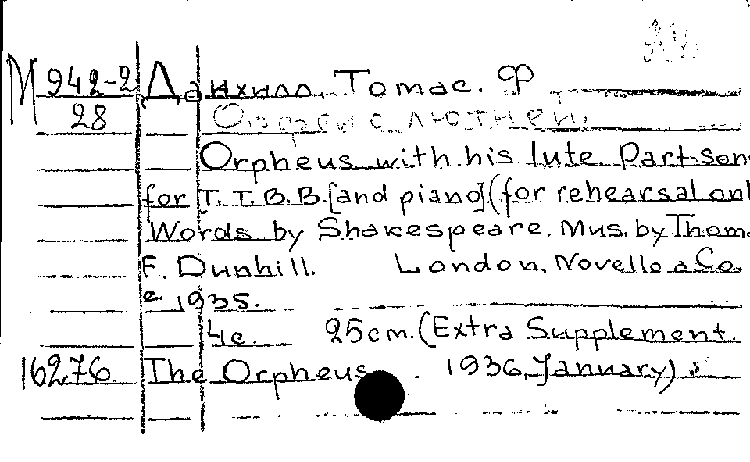 М 942-2 Данхилл, Томас. Ф
28 Орфей с лютней.
Orpheus with his lute Part-son
for T. T. B. B. [and piano] (for rehearsal onl
Words by Shakespeare. Mus. by Thom.
F. Dunhill. London, Novello & Co.
c 1935.
4c. 25cm. (Extra Supplement.
16276 The Orpheus 1936, January)